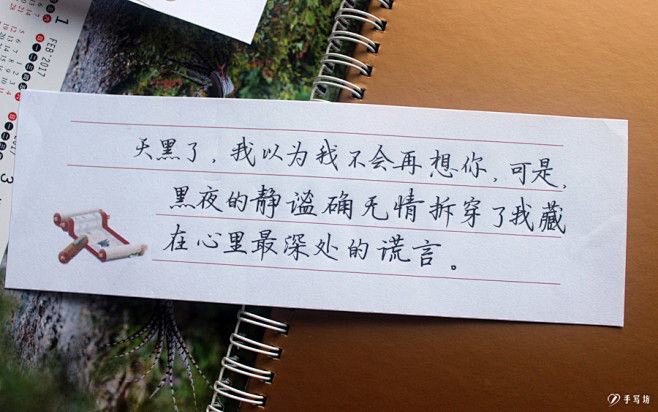 天黑了，我以为我不会再想你，可是，
黑夜的静谧确无情拆穿了我藏
在心里最深处的谎言。
FEB·2017
1
3
手写坊